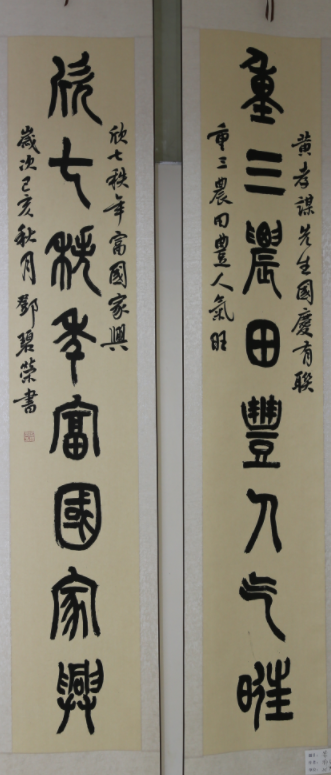 黃孝謀先生國慶有聯
重三農田豐人气旺
重三農田豊人氣旺
欣七秩年富國家興
欣七秩年富國家興
歲次己亥秋月鄧碧榮書